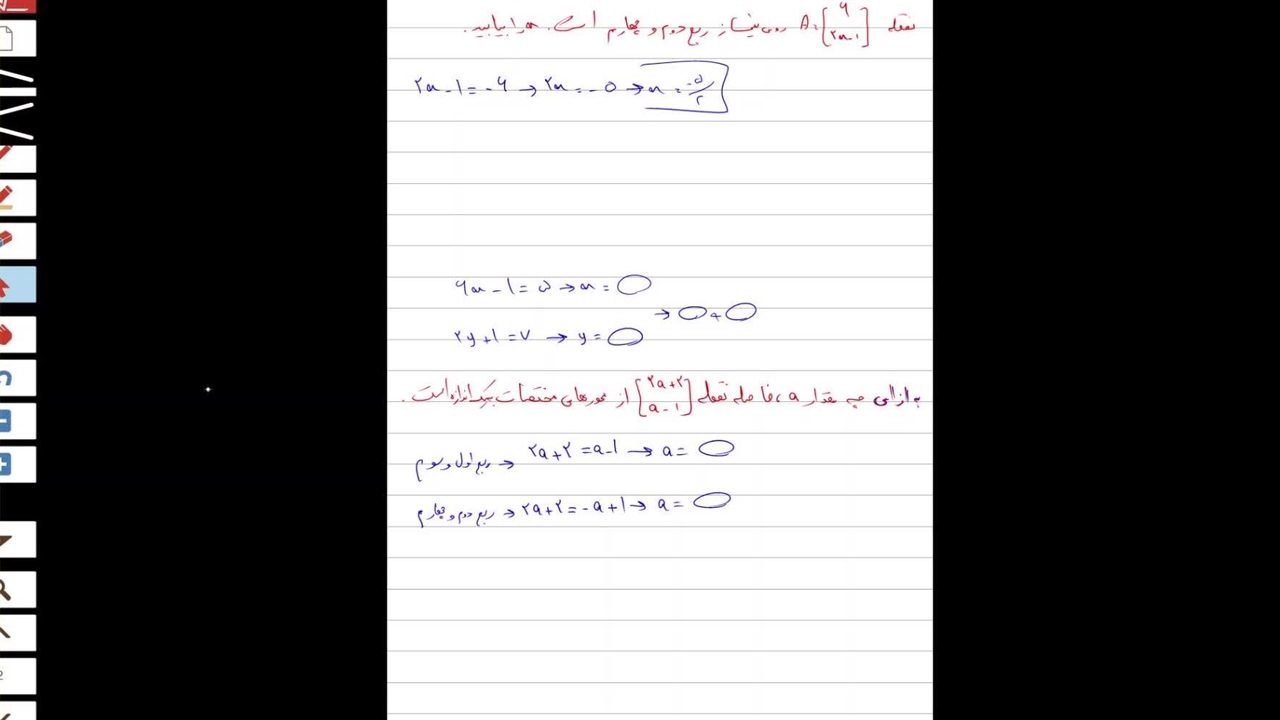 نقطه A=[۶ ۲x-۱] روی نیمساز ربع دوم و چهارم است. x را بیابید.
۲x-۱=-۶ → ۲x=-۵ → x=-۵/۲
۶x-۱=۵ → x=
→ +
۲y+۱=۷ → y=
به ازای چه مقدار a، فاصله نقطه [۲a+۲ a-۱] از محورهای مختصات یک اندازه است.
ربع اول و سوم → ۲a+۲=a-۱ → a=
ربع دوم و چهارم → ۲a+۲=-a+۱ → a=